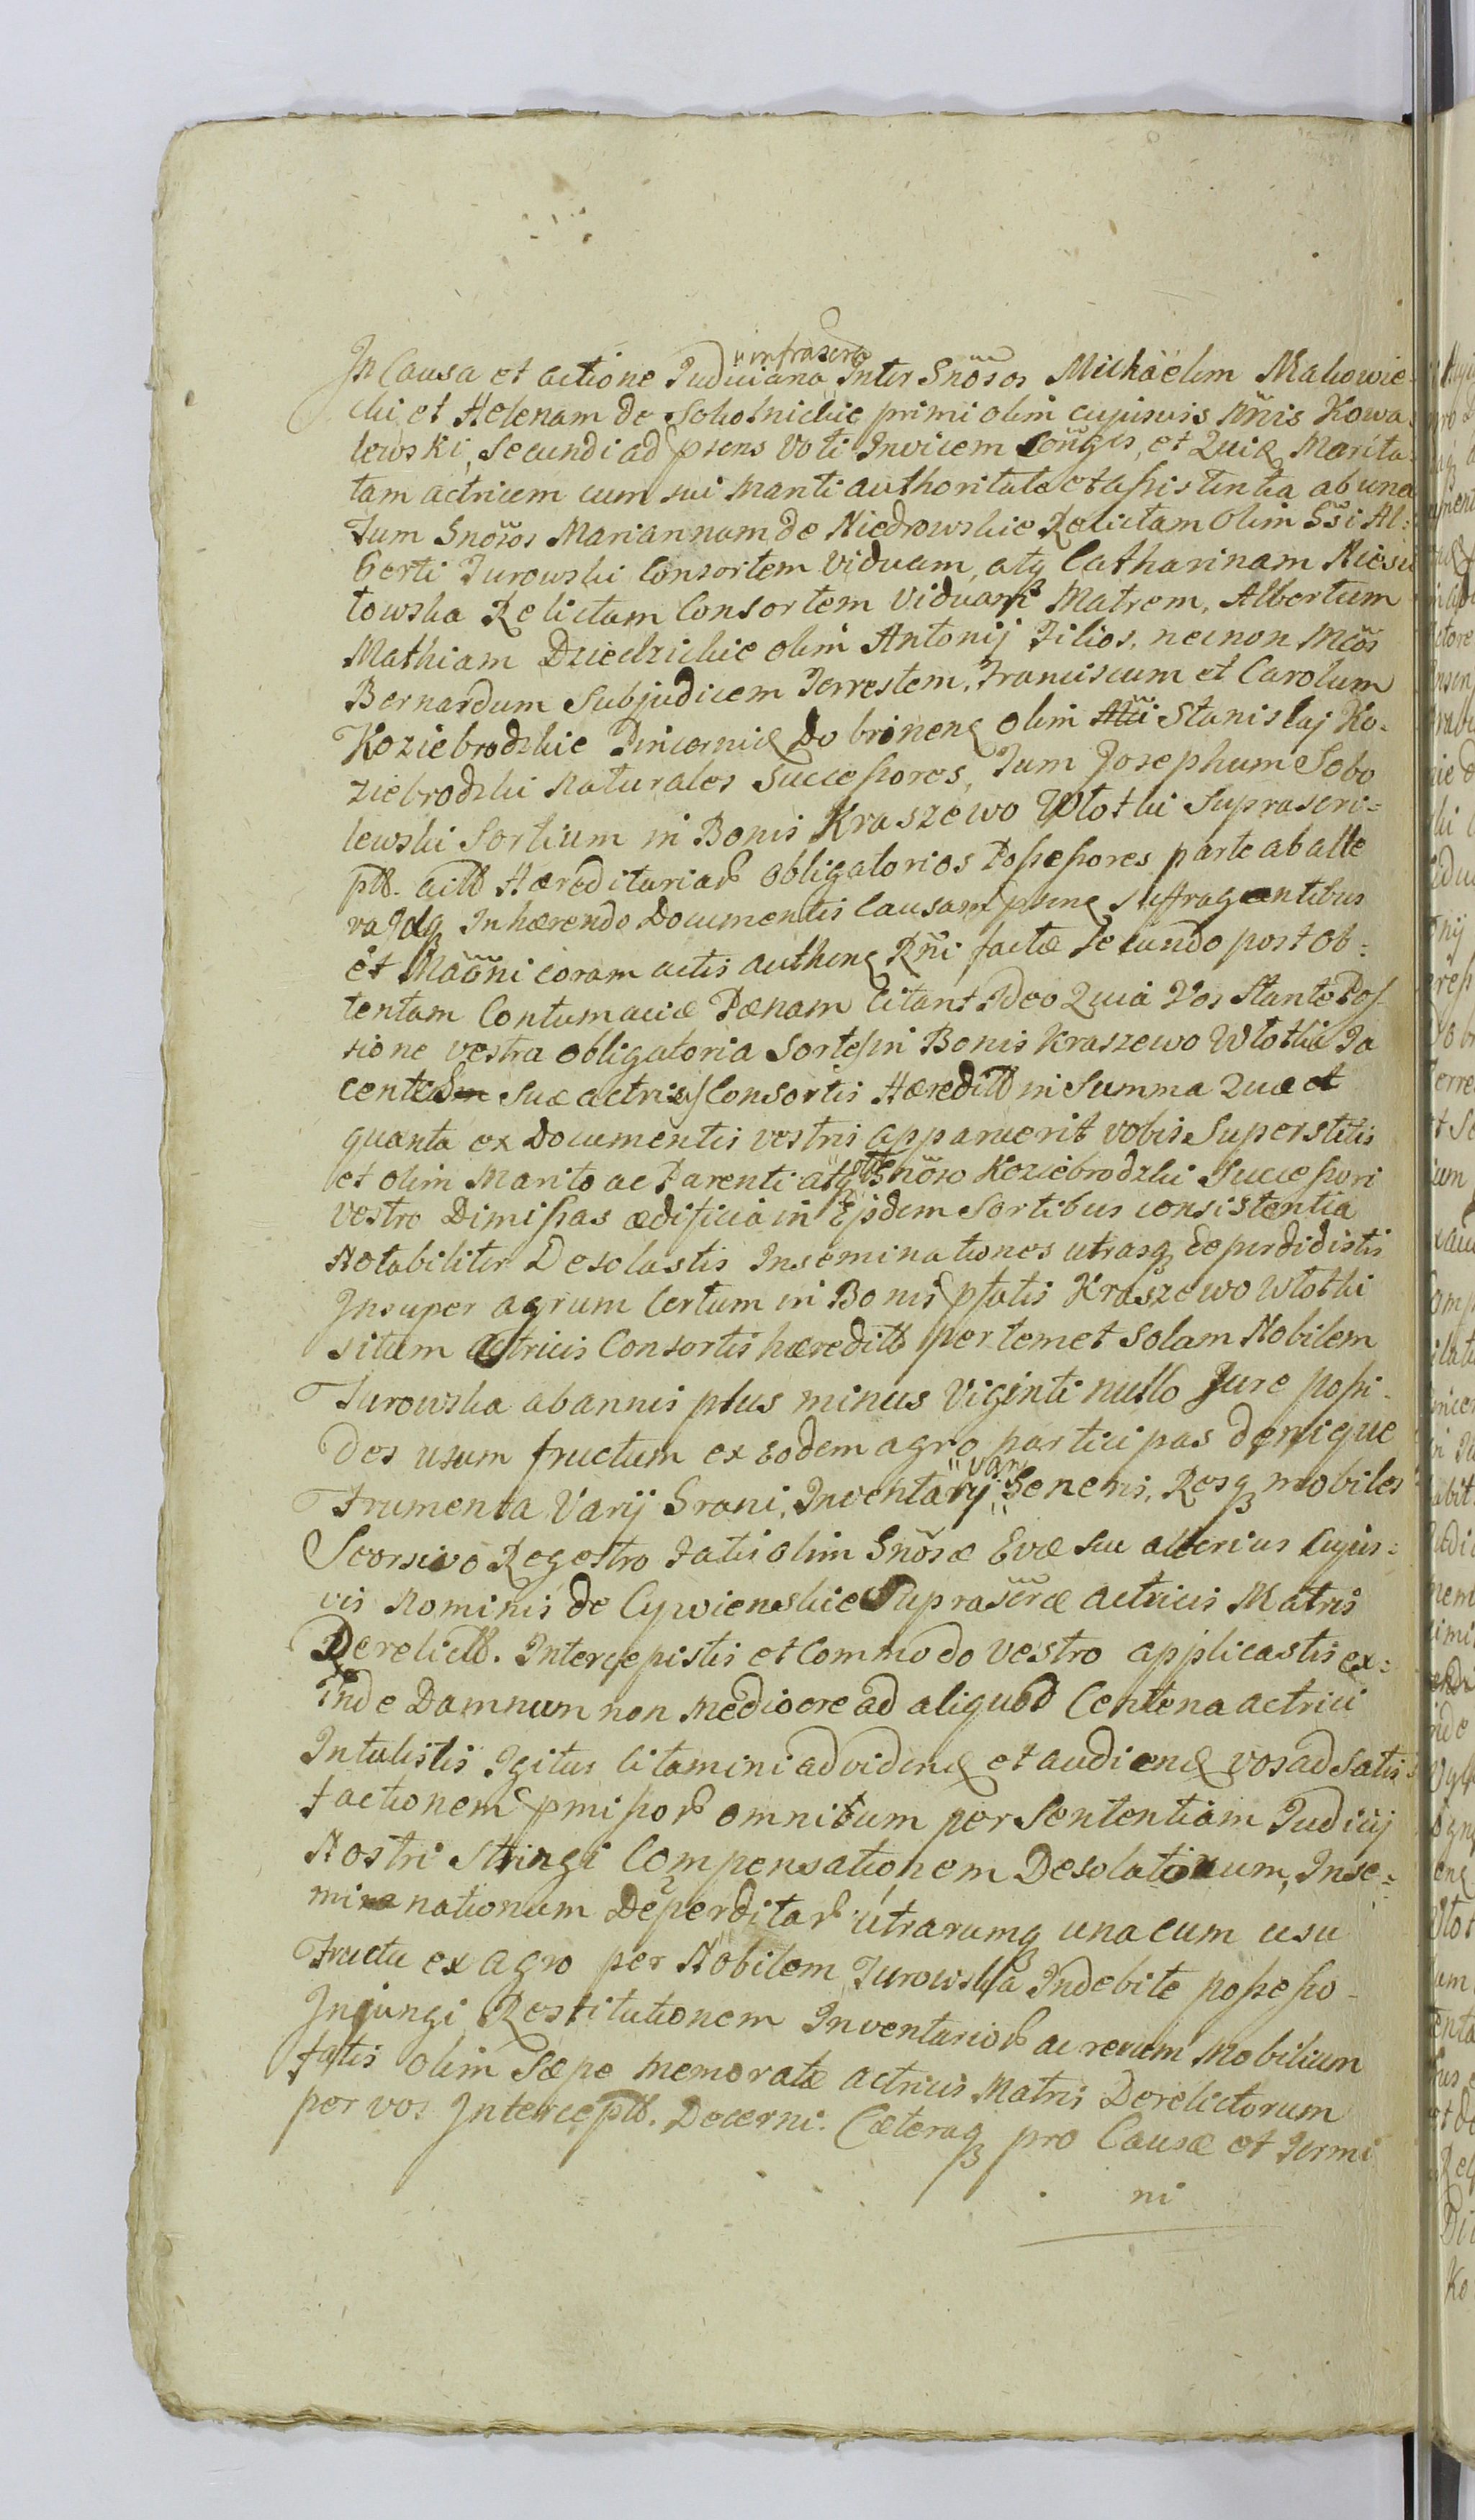 In Causa et actione Judiciana infrascrta Inter Gnõsos Michaëlem Makowie-
cki et Helenam de Sokolnickie primi olim cujusvis Nñis Kowa-
lewski, Secundi ad psens Voti Invicem Coñges, et Quidem Marita-
tam actricem cum sui Mariti authoritate et assistentia ab una
Tum Gnõsos Mariannam de Niedrowskie Relictam olim Gñsi Al=
berti Turowski Consortem Viduam, atq Catharinam Niesu
towska Relictam Consortem Viduam Matrem, Albertum
Mathiam Dziedzickie olim Antonij Filios, necnon Mcos
Bernardum Subjudicem Terrestem, Franciscum et Carolum
Koziebrodzkie Pincernid Dobrinens olim Stanislaj Ko-
ziebrodzki Naturales Successores, Tum Josephum Sobo
lewski Sortium in Bonis Kraszewo Wlotki Suprascri=
ptt. actt Hæreditariar obligatorios Possessores parte ab alte
ra Idq Inhærendo Documentis Causam psens suffragantibus
et Mãõni coram actis authens Rñi factæ Secundo post ob=
tentam Contumaciæ Pænam Citant Ideo Quia Vos Stante Pos
sione vestra obligatoria Sortes in Bonis Kraszewo Wlotkie Ja
centes Suæ actricis Consortis Hæreditt in Summa Quæ et
quanta ex Documentis vestris apparuerit vobis Superstitis
et olim Marito ac Parenti atq Gnõso Koziebrodzki Successori
vestro Dimissas ædificia in Ejsdem Sortibus consistentia
Notabiliter Desolastis Inseminationes utrasq deperdidistis
Insuper agrum Certum in Bonis pfatis Kraszewo Wlotki
situm actricis Consortis hæreditt per temet Solam Nobilem
Turowska ab annis plus minus Viginti nullo Jure possi-
des usum fructum ex eodem agro participas denique
Frumenta Varij Grani, Inventarij varÿ Generis, Resq mobiles
Seorsivo Regestro Fatis olim Gnõsæ Evæ seu alterius Cujus=
vis Nominis de Cywienskie Suprascræ actricis Matris
Derelictt. Intercepistis et Commodo vestro applicastis ex=
inde Damnum non mediocre ad aliquod Centena actrici
Intulistis Igitur Citamini ad videnđ et audienđ vos ad satis
factionem pmissor omnium per Sententiam Judicij
Nostri Stringi Compensationem Desolationum, Inse=
minationum Deperditar utrarumq una cum usu
Fructu ex agro per Nobilem Turowska Indebite possesso-
Injungi Restitutionem Inventarior ac rerum Mobilium
fatis olim Sæpe memoratæ actricis Matris Derelictorum
per vos Interceptt. Decerni. Cæteraq pro Causæ et Termi
ni